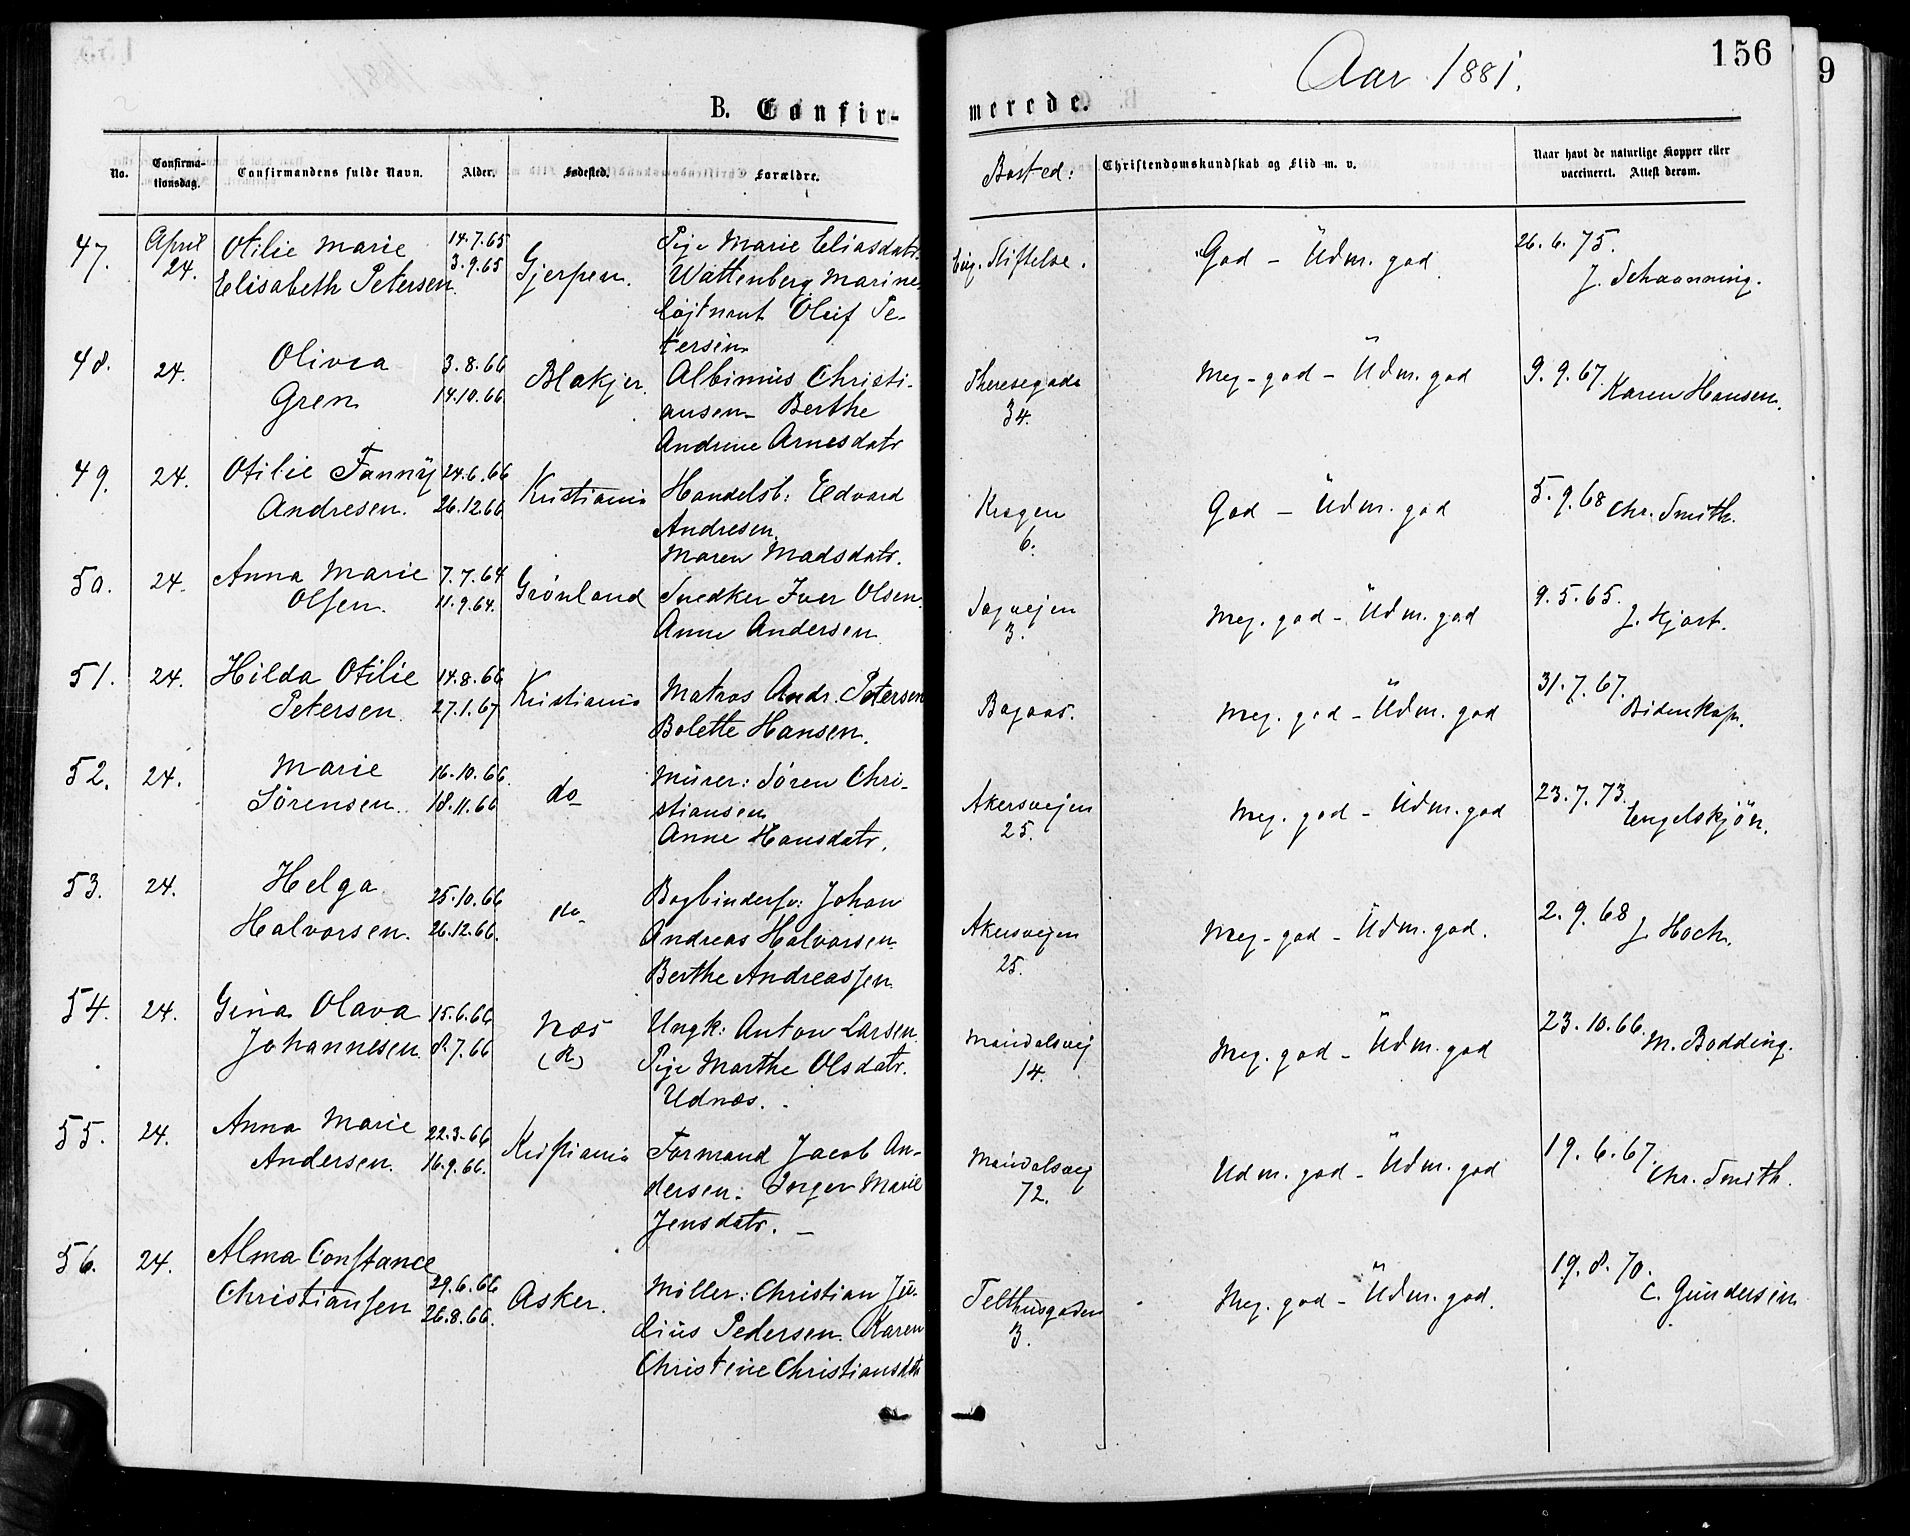 156
9
Aar 1881.
B. Confir-
merede.
No.
Confirma-
tionsdag.
Confirmandens fulde Navn.
Alder.
Fødested.
Forældre.
Bosted:
Christendomskundskab og Flid m. v.
Naar havt de naturlige Kopper eller
vaccineret. Attest derom.
47.
April
24.
Otilie Marie
Elisabeth Petersen
14.7.65
3.9.65
Gjerpen.
Pige Marie Eliasdatr.
Wattenberg Marine-
løjtnant Oluf Pe-
tersen
Eug. Stiftelse.
God - Udm. god
26.6.75.
J. Schaanning.
48.
24.
Olivia
Gren
3.8.66
14.10.66
Blakjer.
Albinius Christi-
ansen - Berthe
Andrine Arnesdatr
Theresegade
34.
Meg. god - Udm. god
9.9.67.
Karen Hansen.
49.
24.
Otilie Fanny
Andresen.
24.6.66
26.12.66
Kristiania
Handelsb: Edvard
Andresen
Maren Madsdatr.
Krogen
6.
God - Udm. god
5.9.68
Chr. Smith.
50.
24.
Anna Marie
Olsen.
7.7.64
11.9.64.
Grønland
Snedker Iver Olsen
Anne Andersen
Sagvejen
3.
Meg. god - Udm. god
9.5.65.
J. Hjort.
51.
24.
Hilda Otilie
Petersen.
14.8.66
27.1.67
Kristiania
Matros Andr. Petersen
Bolette Hansen.
Bagaas.
Meg. god - Udm. god
31.7.67.
Bidenkap.
52.
24.
Marie
Sörensen.
16.10.66
18.11.66
do
Murer: Sören Chri-
stiansen
Anne Hansdatr.
Akersvejen
25.
Meg. god - Udm. god
23.7.73.
Engelskjön.
53.
24.
Helga
Halvorsen.
25.10.66
26.12.66.
do
Bogbindersv: Johan
Andreas Halvorsen
Berthe Andreassen
Akersvejen
25.
Meg. god - Udm. god.
2.9.68
J. Hoch.
54.
24.
Gina Olava
Johannesen
15.6.66
8.7.66
Næs
(R)
Ungk: Anton Larsen
Pige Marthe Olsdatr.
Udnæs.
Maridalsvej
14.
Meg. god - Udm. god
23.10.66.
M. Bodding.
55.
24.
Anna Marie
Andersen.
22.3.66
16.9.66.
Kristiania
Formand Jacob An-
dersen. Inger Marie
Jensdatr. -
Maridalsvej
72.
Udm. god - Udm. god
19.6.67.
Chr. Smith.
56.
24.
Alma Constance
Christiansen
29.6.66
26.8.66.
Asker.
Møller: Christian Ju-
lius Pedersen. Karen
Christine Christiansdtr
Telthusgaden
3.
Meg. god - Udm. god.
19.8.70.
C. Gundersen